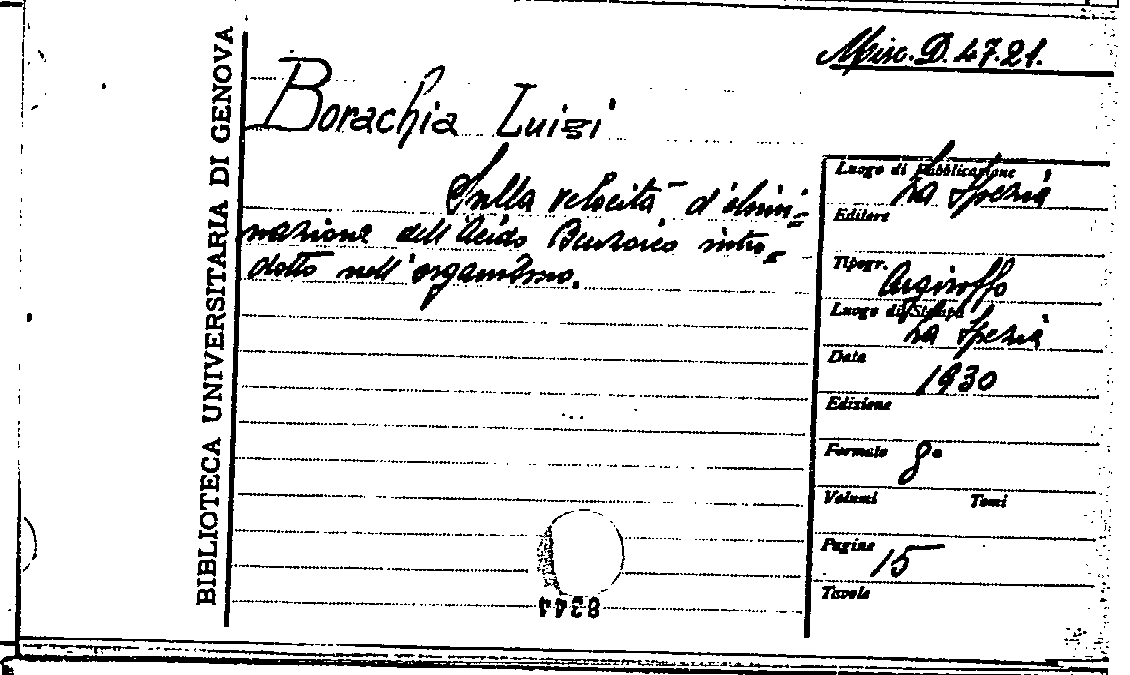 BIBLIOTECA UNIVERSITARIA DI GENOVA
Misc. D. 47.21.
Borachia Luigi
Sulla velocità d'elimi=
nazione dell'Acido Benzoico intro=
dotto nell'organismo.
Luogo di Pubblicazione
La Spezia
Editore
Tipogr.
Argiroffo
Luogo di Stampa
La Spezia
Data
1930
Edizione
Formato 8°
Volumi Tomi
Pagine 15
Tavole
8344